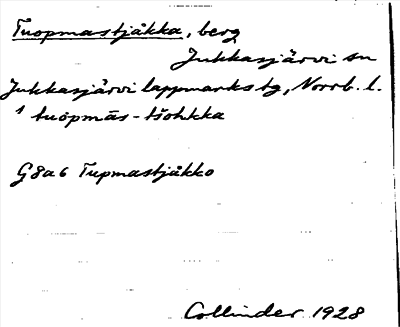 Tuopmastjåkka, berg
Jukkasjärvi sn
Jukkasjärvi lappmarks tg, Norrb. l.
¹ tuopmās-tšohkka
G8a6 Tupmastjåkko
Collinder 1928